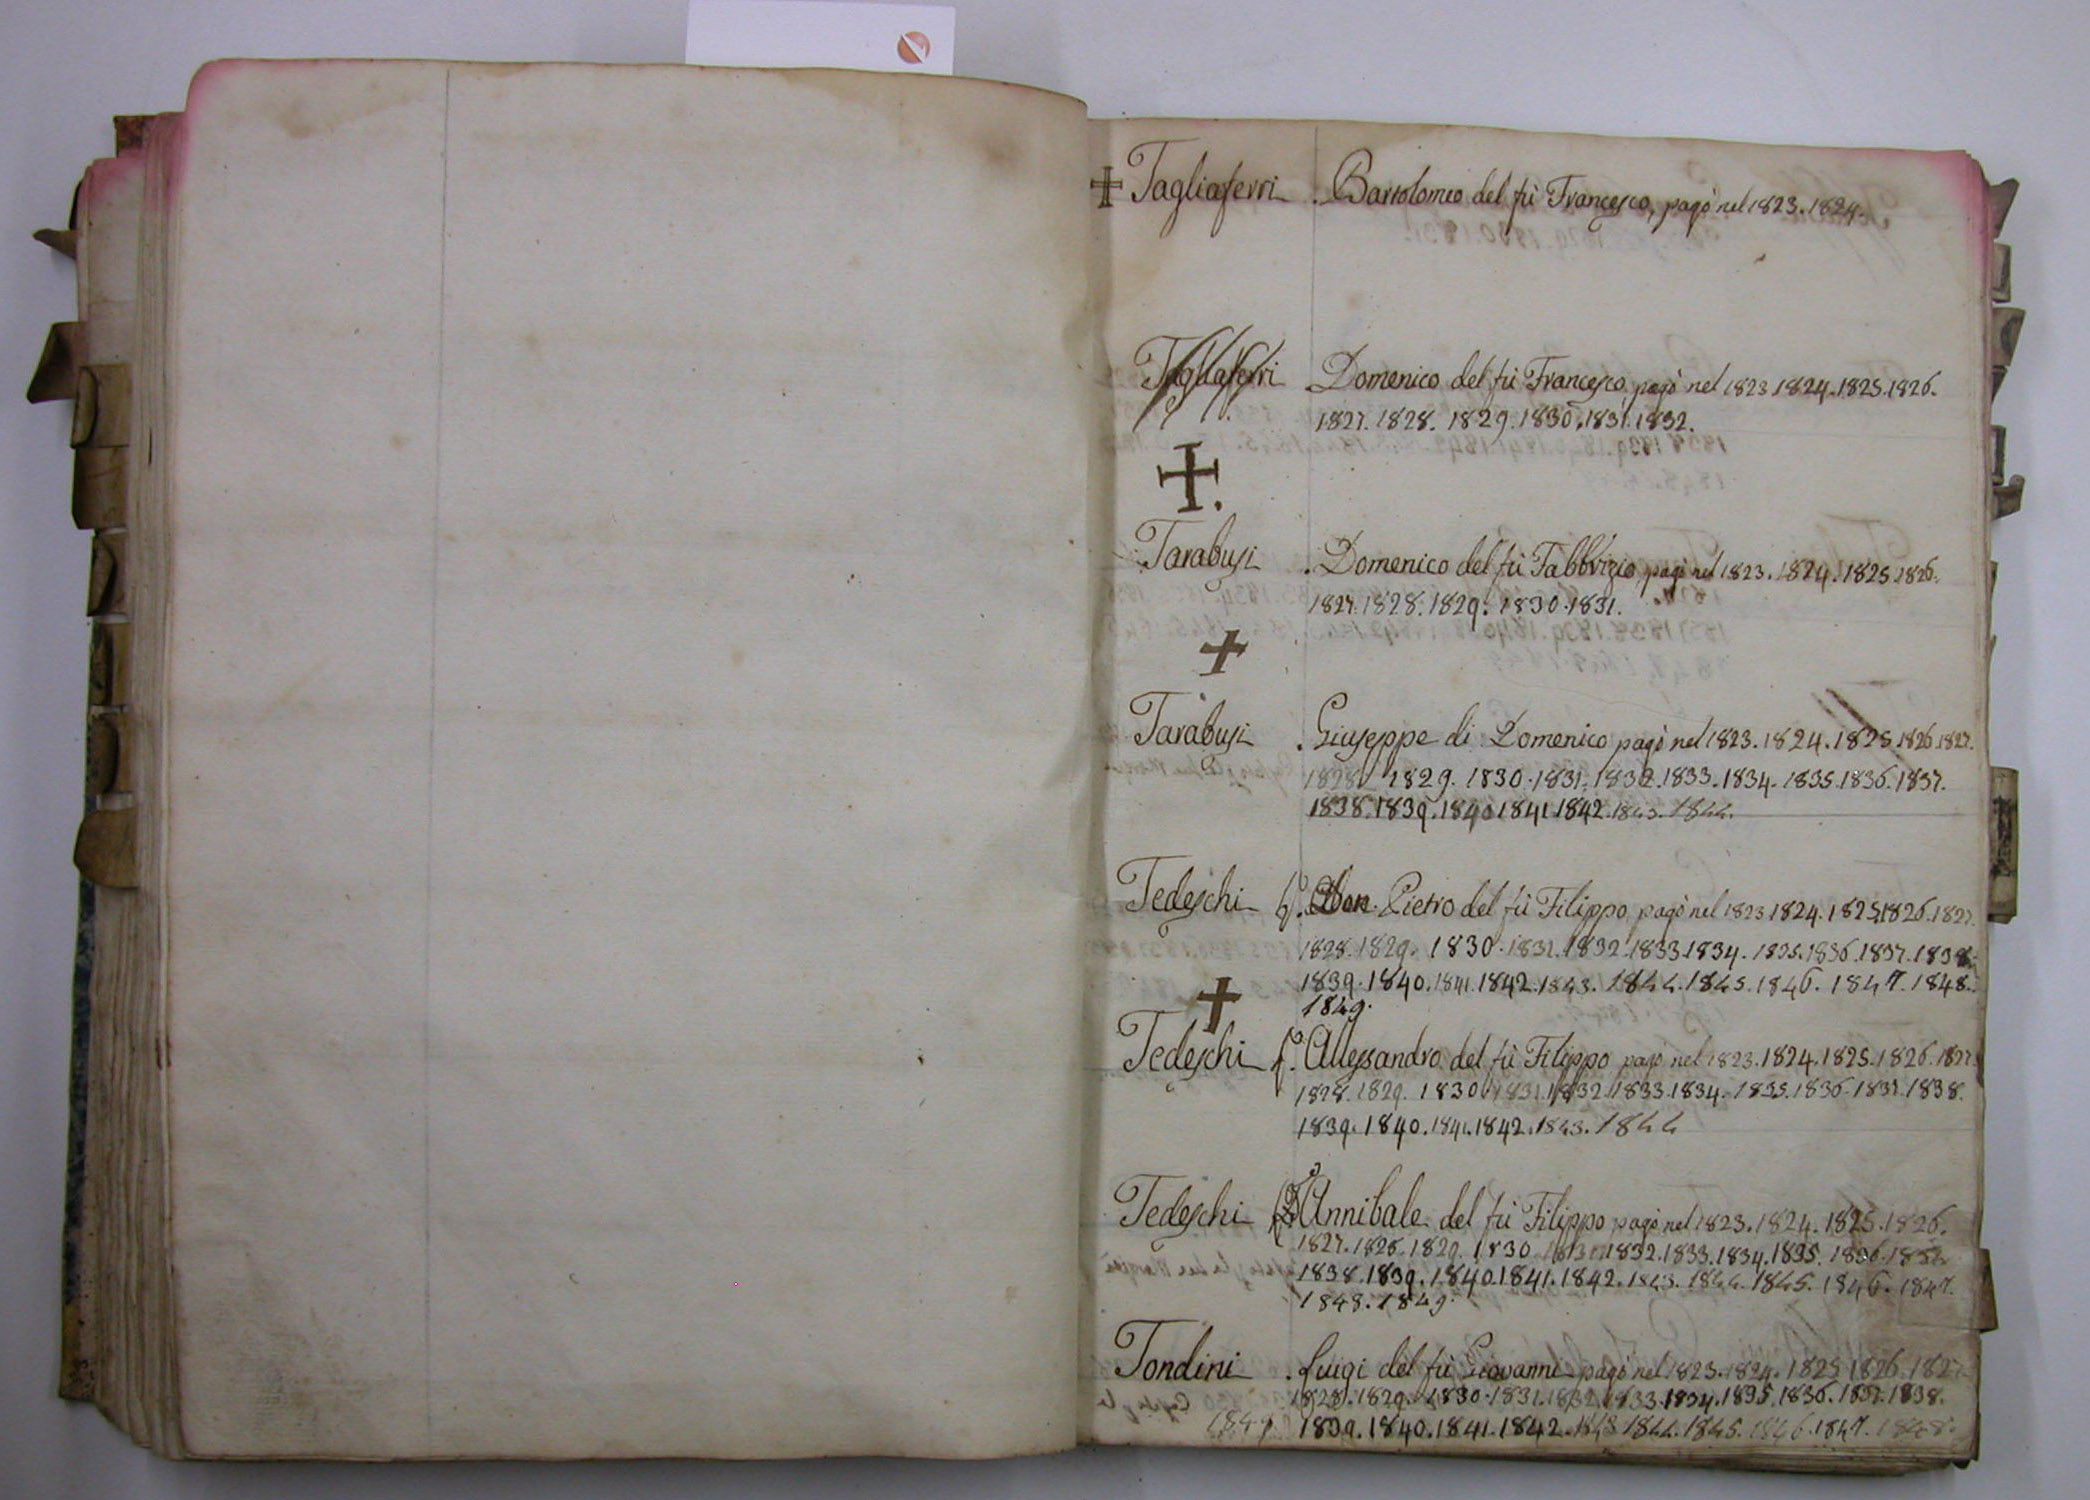 Tagliaferri . Bartolomeo del fù Francesco, pagò nel 1823. 1824.
Tagliaferri . Domenico del fù Francesco, pagò nel 1823. 1824. 1825. 1826.
1827. 1828. 1829. 1830. 1831. 1832.
Tarabusi . Domenico del fù Fabbrizio, pagò nel 1823. 1824. 1825. 1826.
1827. 1828. 1829. 1830. 1831.
Tarabusi . Giuseppe di Domenico pagò nel 1823. 1824. 1825. 1826. 1827.
1828. 1829. 1830. 1831. 1832. 1833. 1834. 1835. 1836. 1837.
1838. 1839. 1840. 1841. 1842. 1843. 1844.
Tedeschi Don Pietro del fù Filippo pagò nel 1823. 1824. 1825. 1826. 1827.
1828. 1829. 1830. 1831. 1832. 1833. 1834. 1835. 1836. 1837. 1838.
1839. 1840. 1841. 1842. 1843. 1844. 1845. 1846. 1847. 1848.
1849.
Tedeschi Allessandro del fù Filippo pagò nel 1823. 1824. 1825. 1826. 1827.
1828. 1829. 1830. 1831. 1832. 1833. 1834. 1835. 1836. 1837. 1838.
1839. 1840. 1841. 1842. 1843. 1844
Tedeschi Annibale del fù Filippo pagò nel 1823. 1824. 1825. 1826.
1827. 1828. 1829. 1830. 1831. 1832. 1833. 1834. 1835. 1836. 1837.
1838. 1839. 1840. 1841. 1842. 1843. 1844. 1845. 1846. 1847.
1848. 1849.
Tondini . Luigi del fù Giovanni pagò nel 1823. 1824. 1825. 1826. 1827.
1828. 1829. 1830. 1831. 1832. 1833. 1834. 1835. 1836. 1837. 1838.
1849. 1839. 1840. 1841. 1842. 1843. 1844. 1845. 1846. 1847. 1848.